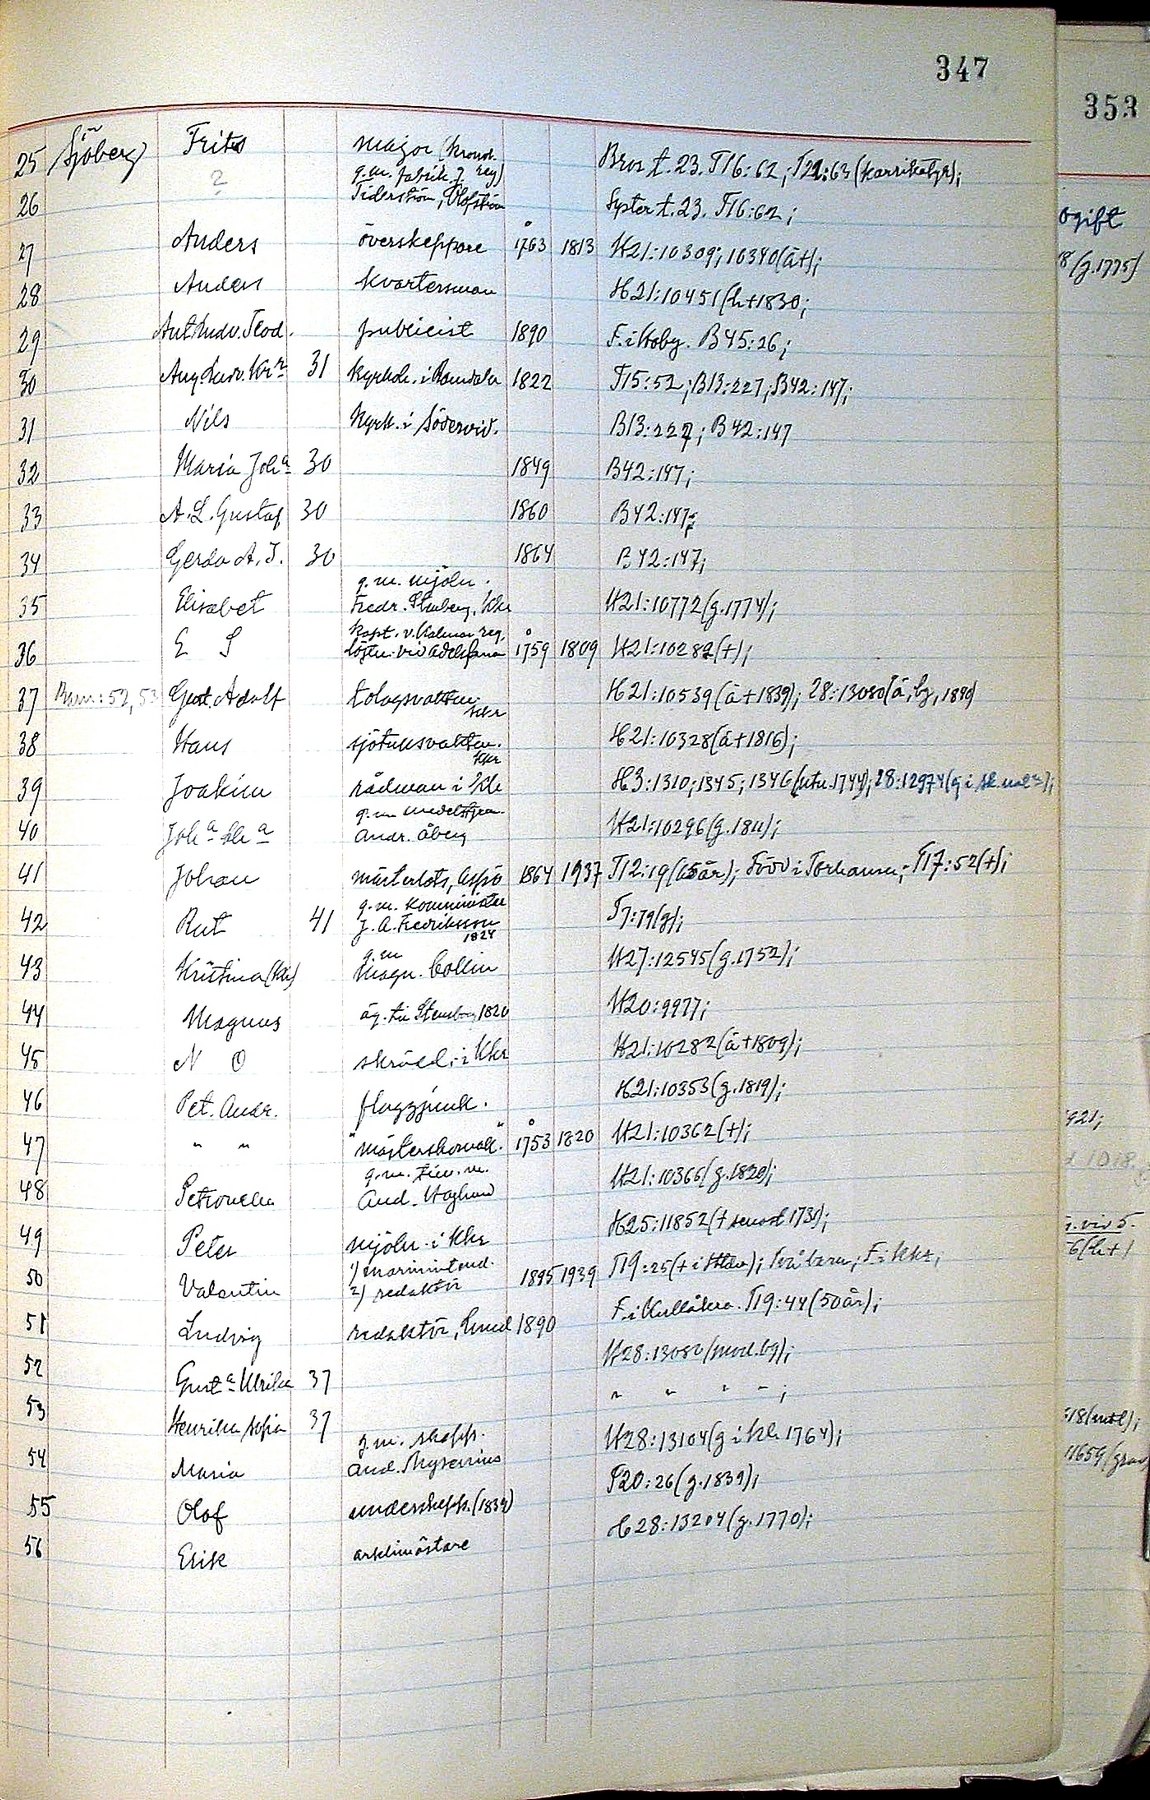 347
353
25 Sjöberg Frits major (Kronob. reg) Bror t. 23. T16:62; T21:63 (karrikatyr);
26 ? g.m. fabrik. J. Tiderström, Olofström Syster t. 23. T16:62;
27 Anders överskeppare 1763 1813 H21:10309; 10340(å+);
28 Anders kvartersman H21:10451(h+1830;
29 Ant. Ludv. Teod. publicist 1890 F. i Hoby. B45:26;
30 Aug. Ludv. 31 kyrkoh. i Ramdala 1822 T15:52; B13:227; B42:147;
31 Nils Kyrk. i Södervid. B13:227; B42:147
32 Maria Joh:a 30 1849 B42:147;
33 A. L. Gustaf 30 1860 B42:147;
34 Gerda A. T. 30 1864 B42:147;
35 Elisabet g.m. mjöln. Fredr. Stenberg, Kkr H21:10772(g.1774);
36 E S kapt. v. Kalmar reg. 1759 1809 H21:10282(+);
37 Barn: 52, 53 Gust. Adolf tolagsvaktm. Kkr H21:10539(å+1839); 28:13080(å, bg, 1840)
38 Hans sjötullsvaktm. Kkr H21:10328(å+1816);
39 Joakim rådman i Kkr H3:1310; 1345; 1346(utn.1744); 28:12974
40 Joh:a g.m. Andr. Åberg H21:10296(g.1811);
41 Johan mästerlots, Aspö 1864 1937 T12:19(65år); Född i Torhamn; T17:52(+);
42 Rut 41 g.m. komminister J. A. Fredriksson 1924 T7:79(g);
43 Kristina g.m Magn. Collin H27:12545(g.1752);
44 Magnus äg. till 1820 H20:9977;
45 N O skrädd. i Kkr H21:10282(å+1809);
46 Pet. Andr. flaggjunk. H21:10353(g.1819);
47 " " "mästerskovakt." 1753 1820 H21:10362(+);
48 Petronella g.m. tim.m. And. Haglund H21:10366(g.1820);
49 Peter mjöln. i Kkr H25:11852(+senast 1731);
50 Valentin 1) marinintend. 2) redaktör 1895 1939 T19:25(+ i); Två barn; F. i Kkr;
51 Ludvig redaktör, Lund 1890 F. i Kullåkra. T19:44(50år);
52 Gust:a Ulrika 37 H28:13080(mod. bg);
53 Henrika Sofia 37 " " " " ;
54 Maria g.m. skepp. And. H28:13104(g i Kkr 1764);
55 Olof underskepp. (1839) T20:26(g.1839);
56 Erik arklimästare H28:13204(g.1770);
ogift
(g.1775)